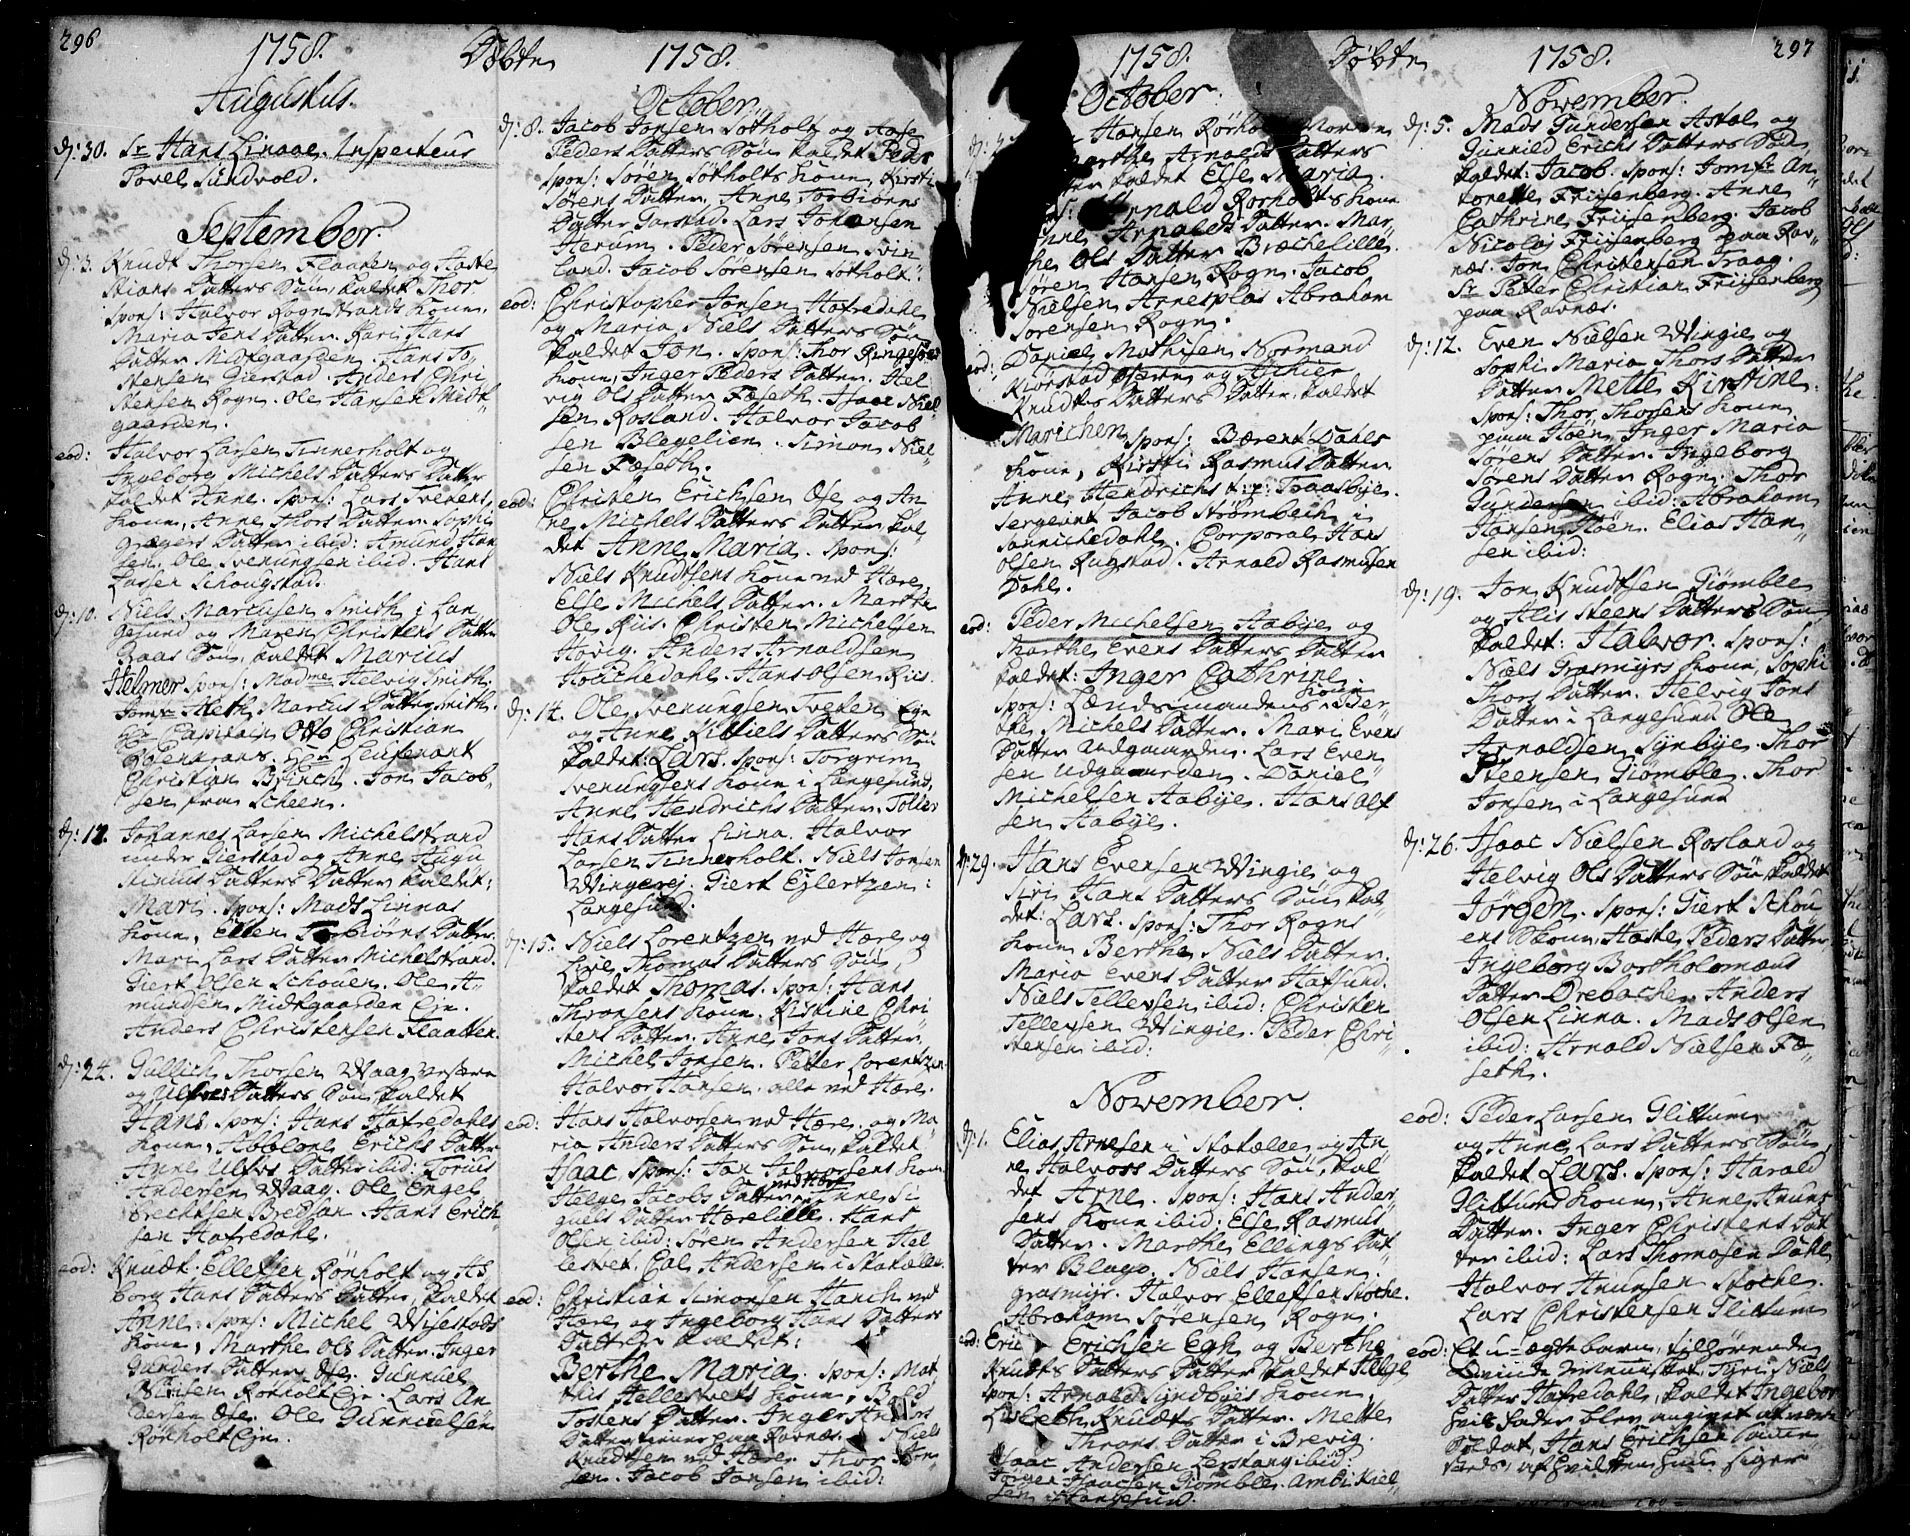 296
1758. Döbte 1758.
Augustus.
d: 30. Sr Hans Linaae. Inspecteur
Povel Sundvold.
September.
d: 3. Knudt Thorsen Flaaten og Aaste
Stians Datters Søn, kaldet Thor
spons: Halvor Rognstrands Kone,
Maria Jens Datter. Kari Hans
Datter Midtgaarden. Hans To
stensen Gierstad. Anders Chri
stensen Rogn. Ole Hansen Midt
gaarden.
eod: Halvor Larsen Tinnerholt og
Ingeborg Michels Datters Datter
kaldet Anne. Spons: Lars Svenens
Kone, Anne Thors Datter. Sophi
Gregers Datter ibid: Amund Han
sen. Ole Svenungsen ibid. Hans
Lassen Schougstad.
d: 10. Niels Marcusen Smith i Lan
gesund og Maren Christens Datter
Graas Søn, kaldet Marius
Helmer Spons: Madme Helvig Smith.
Jomfr Aleth Marcus Datter Smith.
Hr Capitain Otto Christian
Rosenkrans. Hr Leutenant
Christian Brinch. Jon Jacob
sen fra Scheen.
d: 17. Johannes Larsen Michelstrand
under Gierstad og Anne Augu
stinius Datters Datter kaldet:
Mari. Spons: Mads Linnas
Kone, Ellen Torbiørns Datter.
Mari Lars Datter Michelstrand.
Giert Olsen Schouen. Ole A
mundsen Midtgaarden Eje.
Anders Christensen Flaatten.
d: 24. Gullich Thorsen Waag
og Datters Søn kaldet
Hans. Spons: Hans Hafredahls
Kone, Abbelone Erichs Datter
Anne Ulfs Datter ibid: Torius
Andersen Waag. Ole Engel
brechtsen Bredsan. Hans Erich
sen Hafredahl.
eod: Knudt Ellefsen Rønholt og As
borg Hans Datters Datter, kaldet
Anne. spons: Michel Wisestads
Kone, Marthe Ols Datter. Inger
Gunders Datter Ose. Gunnuel
Nilsen Rønholt Eje. Lars An
dersen Ose. Ole Gunnuelsen
Rønholt Eje.
October.
d: 8. Jacob Jonsen Søtholt og Aase
Peders Datters Søn kaldet Peder
spons: Søren Søtholts Kone, Kirsti
Sørens Datter. Anne Torbiørns
Datter Garstad. Lars Johansen
Herum. Peder Sørensen Svin
land. Jacob Sørensen Søtholt.
eod: Christopher Jonsen Hafredahl
og Maria Niels Datters Søn
kaldet Jon. Spons: Thor Ringsøes
Kone, Inger Peders Datter. Hel
vig Ols Datter Fæseth. Isaac Niel
sen Rosland. Halvor Jacob
sen Blegelien. Simon Niel
sen Fæseth.
eod: Christen Erichsen Ose og An
ne Michels Datters Datter kal
det Anne Maria. Spons:
Niels Knudtsens Kone ved Hære
Else Michels Datter. Marthe
Ols Riis. Christen Michelsen
Hovig. Anders Arnoldsen
Houchedahl. Hans Olsen Riis.
d: 14. Ole Svenungsen Svenen Eje
og Anne Kittiels Datters Søn
kaldet: Lars. Spons: Torgrim
Svenungsens Kone i Langesund,
Anne Hendrichs Datter. Tollev
Hans Datter Linna. Halvor
Larsen Tinnerholt. Niels Jonsen
Wingerej. Giert Eylertzen i
Langesund.
d: 15. Niels Lorentzen ved Hære og
Live Thomas Datters Søn
kaldet Thomas. Spons: Hans
Thronsens Kone. Kirstine Chri
stens Datter. Anne Jons Datter.
Michel Jonsen. Petter Lorentzen.
Halvor Hansen. alle ved Hære.
eod: Hans Halvorsen ved Hære og Ma
ria Anders Datters Søn, kaldet
Isaac. Spons: Jon Halvorsens Kone
Helge Jacobs Datter ved Hære Anne Si
guels Datter Hærelille. Hans
Olsen ibid: Søren Andersen Hel
lestvet. Carl Andersen i Stokalln
eod: Christian Simonsen Hanch ved
Hære og Ingeborg Hans Datters
Datter kaldet:
Berthe Maria. Spons: Mat
this Hellestvets Kone, Bred
Tostens Datter. Inger Anders
Datter tiener paa Ravnæs. Niels
Knudtsen ved Hære. Thor Jon
sen. Jacob Jonsen ibid:
297
1758. Döbte 1758.
October.
Hansen Rørholt
Marthe Arnolds Datters
Datter kaldet Else Maria.
Arnold Rørholts Kone
Anne Arnolds Datter. Mar
the Ols Datter Bræchelille.
Søren Hansen Rogn. Jacob
Nielsen Arnesplas Abraham
Sørensen Rogn.
eod: Daniel Mathisen Normand
Kiørstad og Achier
Knudts Datters Datter, kaldet
Marichen Spons: Bærent Dahls
Kone, Kirsti Rasmus Datter
Anne Hendrichs Traasbye.
Sergeant Jacob Strømbech i
Sannichedahl. Corporal Hans
Olsen Rugstad. Arnold Rasmusen
Dahl.
eod: Peder Michelsen Aabye og
Marthe Evens Datters Datter
kaldet: Inger Cathrine.
spons: Lændsmandens Kone Ber
the Michels Datter. Mari Evens
Datter Udgaarden. Lars Even
sen Udgaarden. Daniel
Michelsen Aabye. Hans Olf
sen Aabye.
d: 29. Hans Evensen Wingie, og
Siri Hans Datters Søn kal
det: Lars. Spons: Thor Rogns
Kone Berthe Niels Datter.
Maria Evens Datter Hafsund.
Niels Tellevsen ibid: Christen
Tellevsen Wingie. Peder Chri
stensen ibid:
November.
d: 1. Elias Arnesen i Stokalln og An
ne Halvors Datters Søn, kal
det Arne. Spons: Hans Ander
sens Kone ibid. Else Rasmus
Datter. Marthe Ellings Dat
ter Blago. Niels Hansen
grasmyr. Halvor Ellefsen Stoche.
Abraham Sørensen Rogn.
eod: Eric Erichsen Egh og Berthe
Knudts Datters Datter kaldet Helge
spons: Arnold Syndbyes Kone
Lisbeth Knudts Datter. Mette
Throns Datter i Brevig.
Isaac Andersen Lerstang ibid:
Jørgen Isaacsen Giømble. Amdi Niel
sen i Langesund.
November.
d: 5. Mads Gundersen Aastal og
Gunnild Erichs Datters Søn
kaldet: Jacob. spons: Jomfr An
torette Friisenberg. Anne
Cathrine Friisenberg. Jacob
Nicolaj Friisenberg paa Rav
næs. Jon Christensen Traag.
Sr Peter Christian Friisenberg
paa Ravnæs.
d: 12. Even Nielsen Wingie og
Sophi Maria Thors Datters
Datter Mette Kirstine.
spons: Thor Thorsens Kone
paa Høen, Inger Maria
Sørens Datter. Ingeborg
Sørens Datter Rogn. Thor
Gundersen ibid: Abraham
Hansen Høen. Elias Han
sen ibid:
d: 19. Jon Knudtsen Giømble
og Alis Steens Datters Søn
kaldet: Halvor. Spons:
Niels Grasmyrs Kone, Sophi
Thors Datter. Helvig Jons
Datter i Langesund Ole
Arnoldsen Synbye. Thor
Steensen Giømble. Thor
Jonsen i Langesund
d: 26. Isaac Nielsen Rosland og
Helvig Ols Datters Søn, kaldet
Jørgen. Spons: Giert Schou
ens Kone, Haste Peders Datter,
Ingeborg Bartholomæus
Datter Ørebache. Anders
Olsen Linna. Mads Olsen
ibid: Arnold Nielsen Fæ
seth.
eod: Peder Larsen Glittum
og Anne Lars Datters Søn,
kaldet Lars. Spons: Harald
Glittums Kone, Anne Anuns
Datter. Inger Christens Dat
ter ibid: Lars Thomæsen Dahl.
Halvor Anunsen Stoche.
Lars Christensen Glittum
eod: Et u-ægte barn, tilhørende
Qvinde Mennisket Gyri Niels
Datter Hafredahl, kaldet Ingebor
hvis fader blev angivet at være
Soldat, Hans Erichsen
, af hvilken hun siger